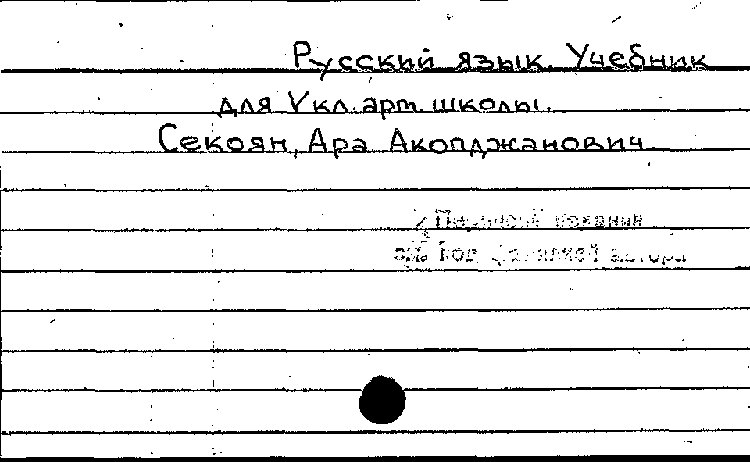 Русский язык. Учебник
для V кл. арт. школы.
Секоян, Ара Акопджанович
см. под фамилией автора